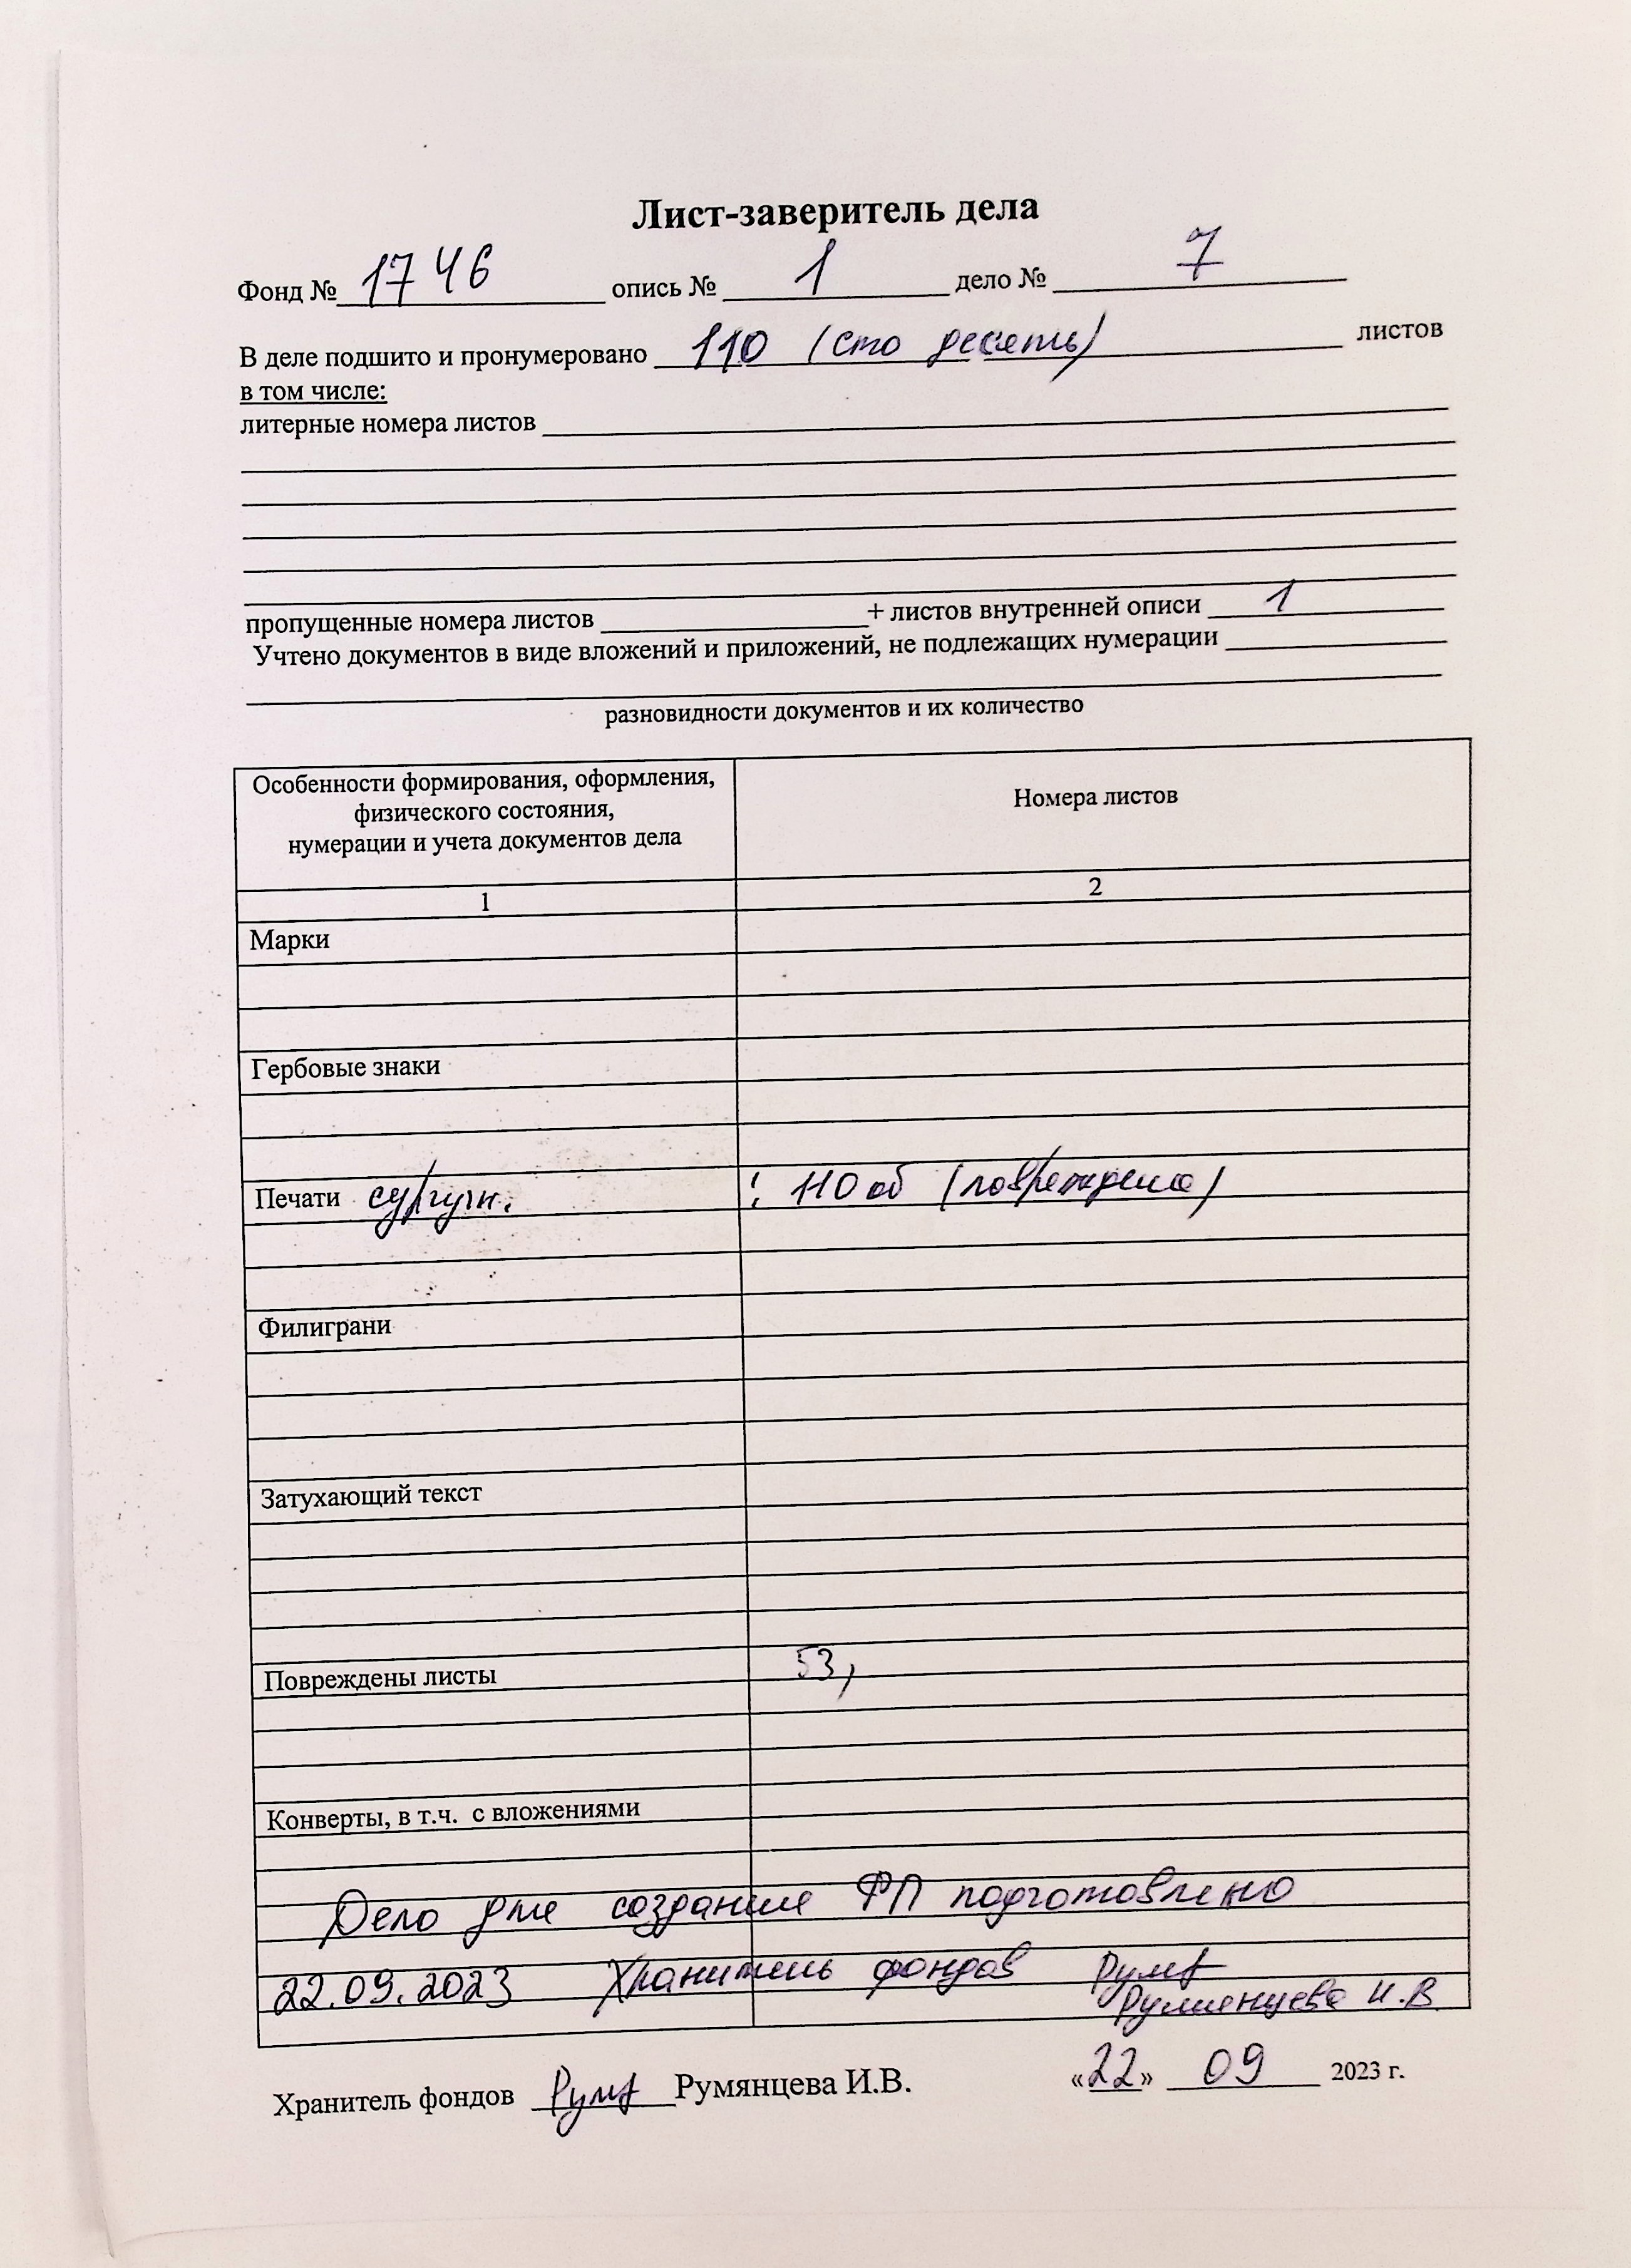 Лист-заверитель дела
Фонд № 1746 опись № 1 дело № 7
В деле подшито и пронумеровано 110 (сто десять) листов
в том числе:
литерные номера листов
пропущенные номера листов + листов внутренней описи 1
Учтено документов в виде вложений и приложений, не подлежащих нумерации
разновидности документов и их количество
Особенности формирования, оформления,
физического состояния,
нумерации и учета документов дела
Номера листов
1 2
Марки
Гербовые знаки
Печати сургучн. : 110 об (повреждена)
Филиграни
Затухающий текст
Повреждены листы 53,
Конверты, в т.ч. с вложениями
Дело для создания ФП подготовлено
22.09.2023 Хранитель фондов
Румянцева И.В.
Хранитель фондов Румянцева И.В. «22» 09 2023 г.